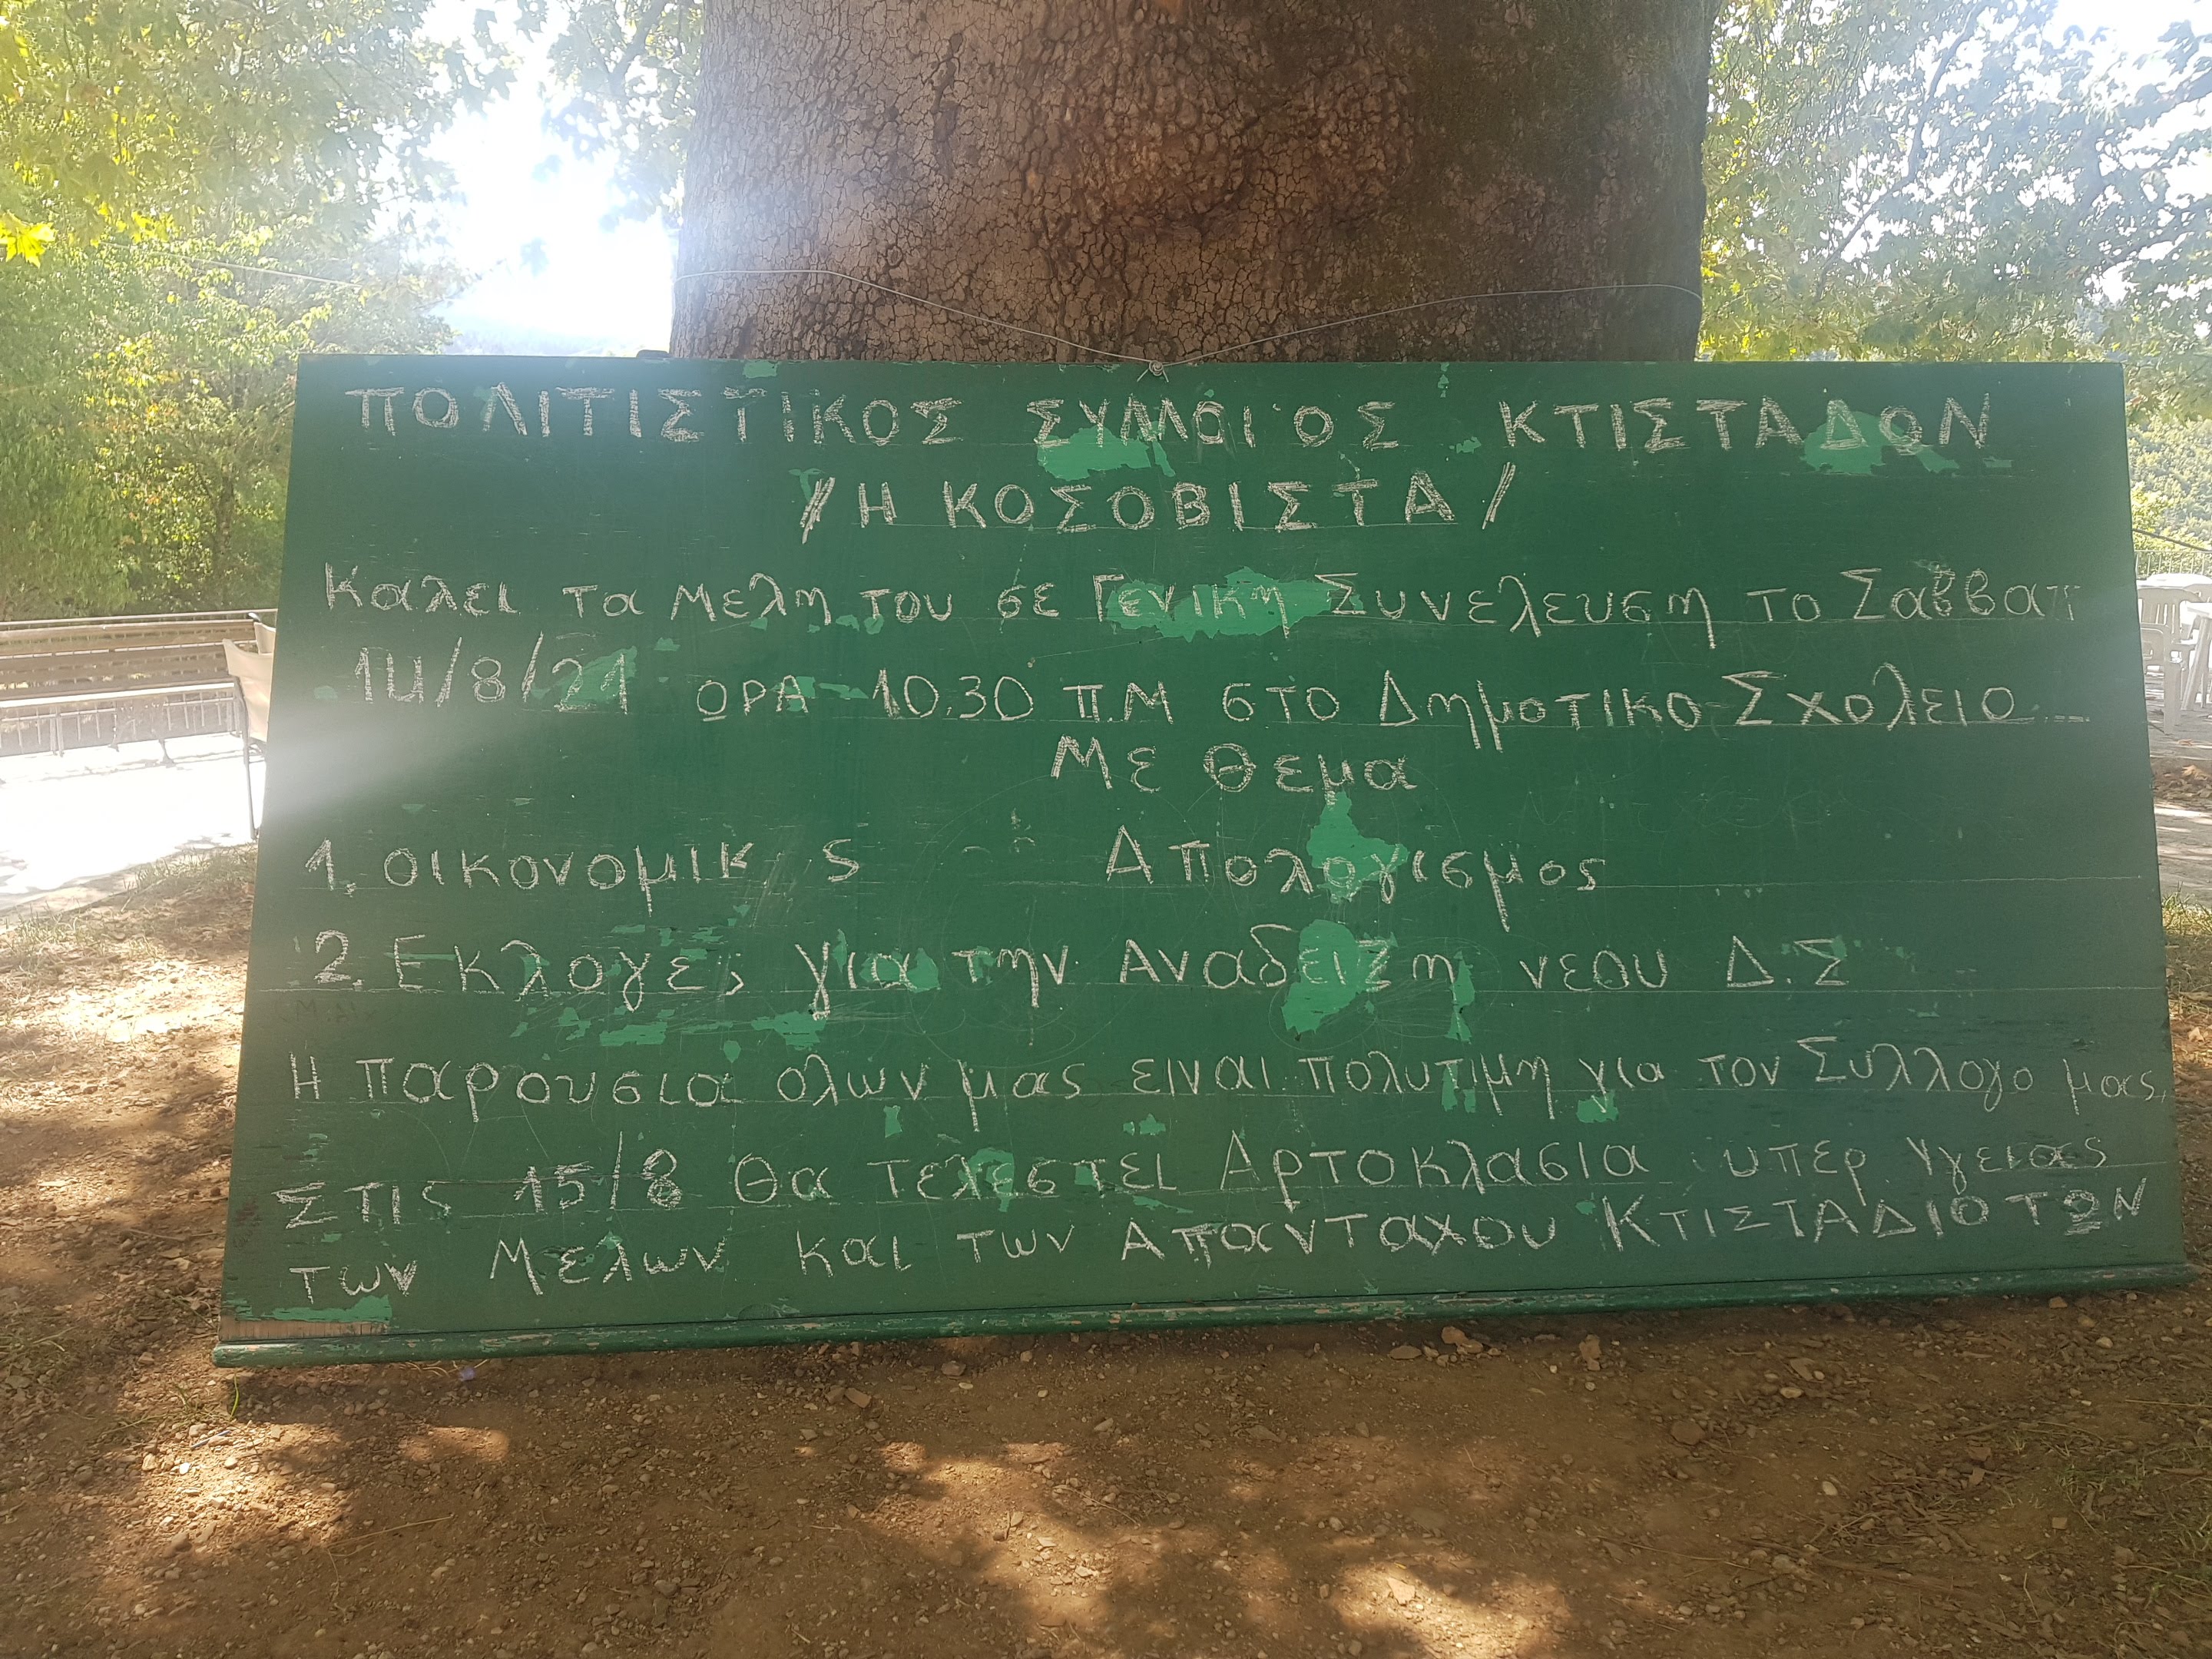 ΠΟΛΙΤΙΣΤΙΚΟΣ ΣΥΛΛΟΓΟΣ ΚΤΙΣΤΑΔΩΝ
/Η ΚΟΣΟΒΙΣΤΑ/
Καλει τα Μελη του σε Γενικη Συνελευση το Σαββατ
14/8/21 ΩΡΑ 10.30 Π.Μ στο Δημοτικο Σχολειο
Με Θεμα
1. οικονομικ ς Απολογισμος
2. Εκλογες για την Αναδειξη νεου Δ.Σ
Η παρουσια ολων μας ειναι πολυτιμη για τον Συλλογο μας.
Στις 15/8 Θα τελεστει Αρτοκλασια υπερ Υγειας
των Μελων και των Απανταχου ΚΤΙΣΤΑΔΙΟΤΩΝ